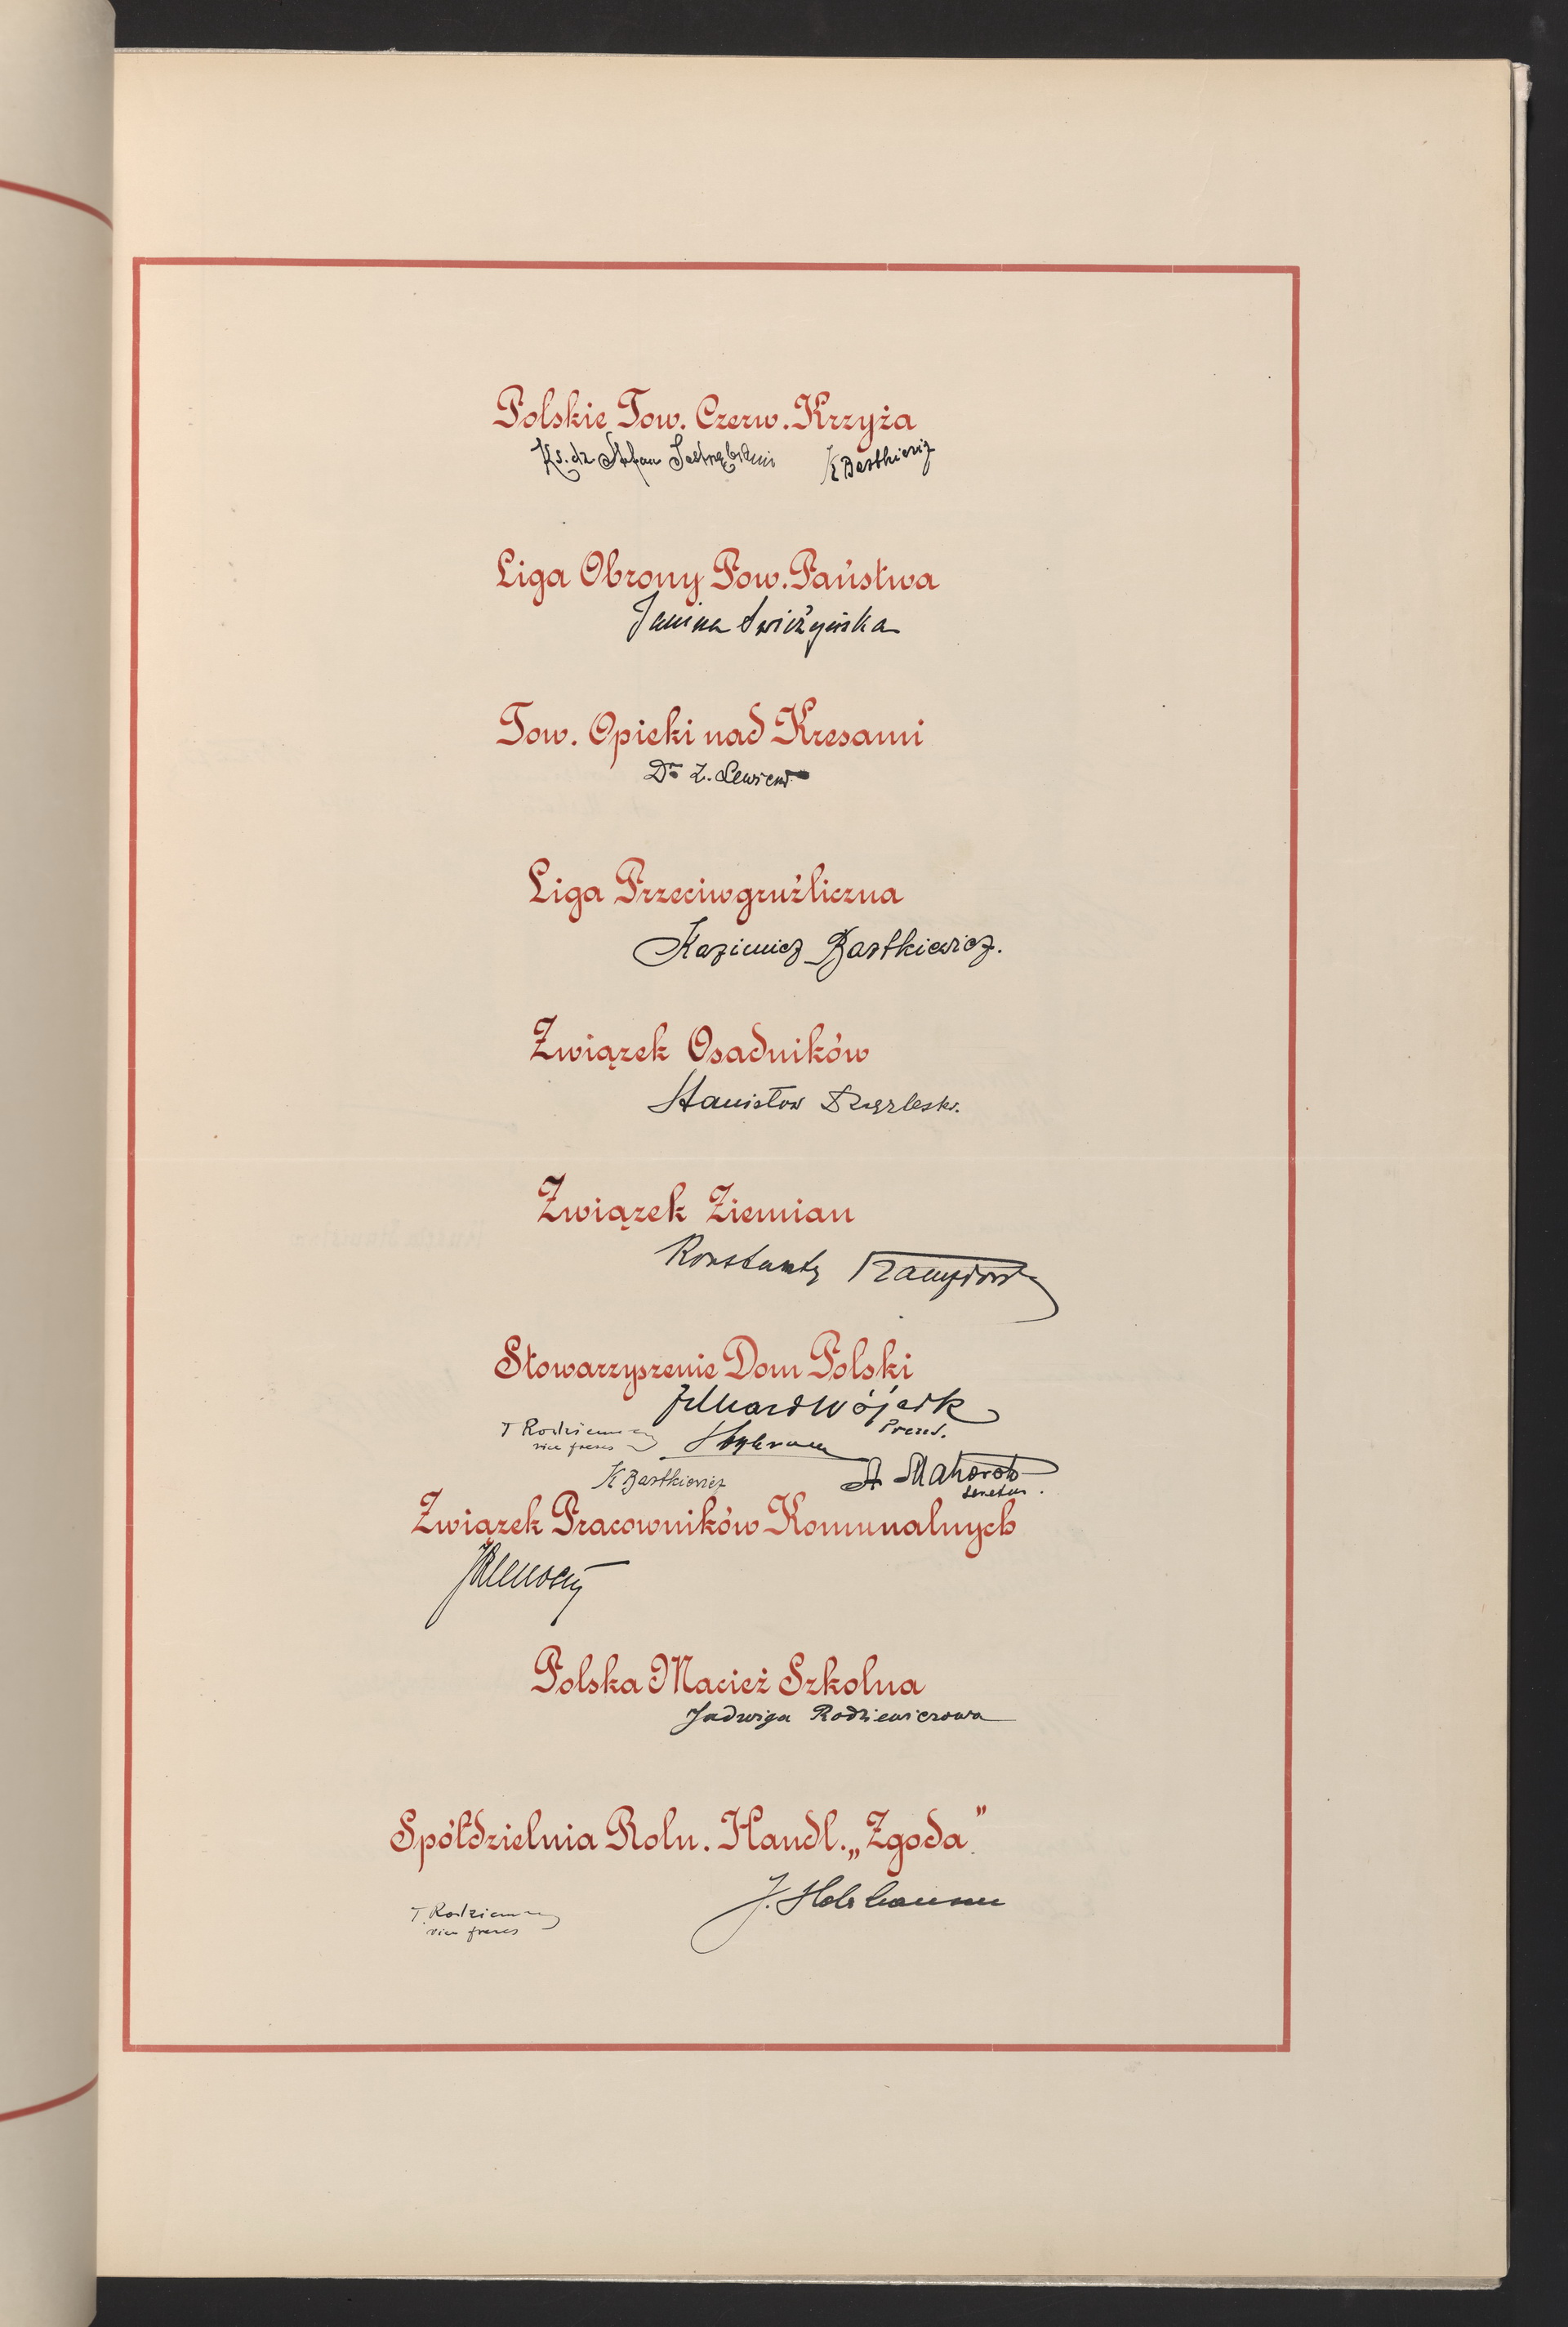 Polskie Tow. Czerw. Krzyża
Ks. dr Stefan K Bartkiewicz
Liga Obrony Pow. Państwa
Janina Świeżyńska
Tow. Opieki nad Kresami
Dr Z.
Liga Przeciwgruźliczna
Kazimierz Bartkiewicz.
Związek Osadników
Stanisław
Związek Ziemian
Konstanty
Stowarzyszenie Dom Polski
Wójcik
Prezes.
T Rodziewicz
vice prezes
K Bartkiewicz A
senator.
Związek Pracowników Komunalnych
Polska Macierz Szkolna
Jadwiga Rodziewiczowa
Spółdzielnia Roln. Handl. „Zgoda"
J. Holzhausen
T. Rodziewicz
vice prezes